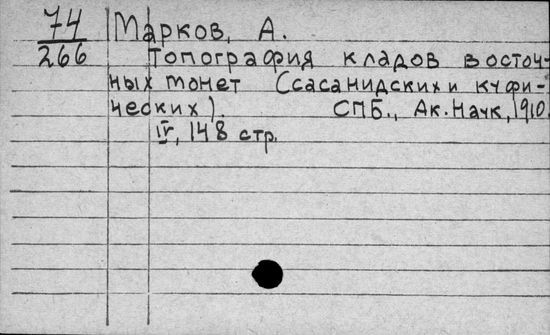 74 Марков, А.
266 Топография кладов восточ-
ных монет (сасанидских и куфи-
ческих). СПБ., Ак. Наук, 1910.
IV, 148 стр.